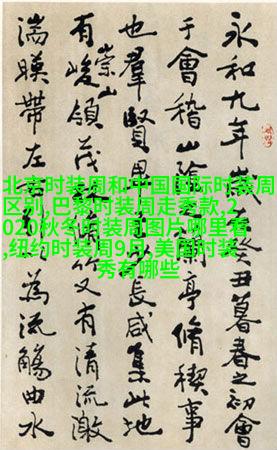 永和九年歲癸丑暮春之初會
于會稽山陰亭脩稧事
也羣賢長咸集此地
有崇山峻領茂竹又有清流激
湍暎帶左為流觴曲水
北京时装周和中国国际时装周
区别,巴黎时装周走秀款,2
020秋冬时装周图片哪里看
,纽约时装周9月,美国时装
秀有哪些